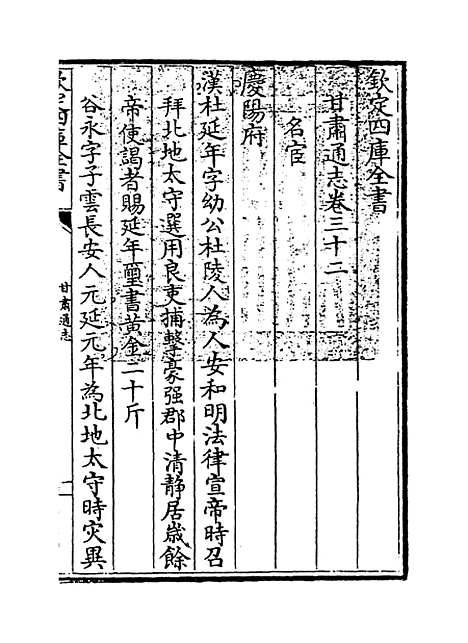 欽定四庫全書
甘肅通志卷三十二
名宦
慶陽府
漢杜延年字幼公杜陵人為人安和明法律宣帝時召
拜北地太守選用良吏捕擊豪强郡中清靜居歲餘
帝使謁者賜延年璽書黄金二十斤
谷永字子雲長安人元延元年為北地太守時灾異
欽定四庫全書
甘肅通志